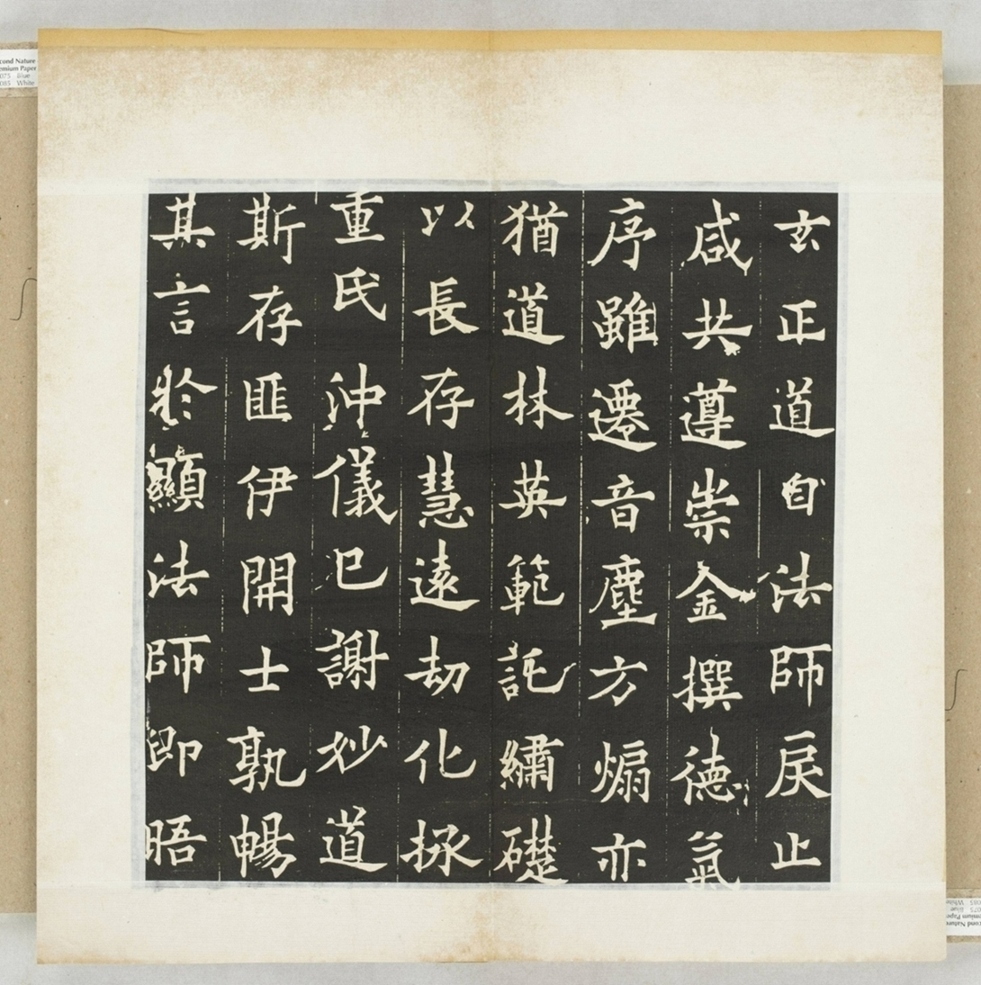 玄正道自法師戾止
咸共遵崇金撰德氣
序雖遷音塵方煽亦
猶道林英範託繡礎
以長存慧遠劫化掭
重氏沖儀已謝妙道
斯存匪伊開士孰暢
其言於顯法師即晤